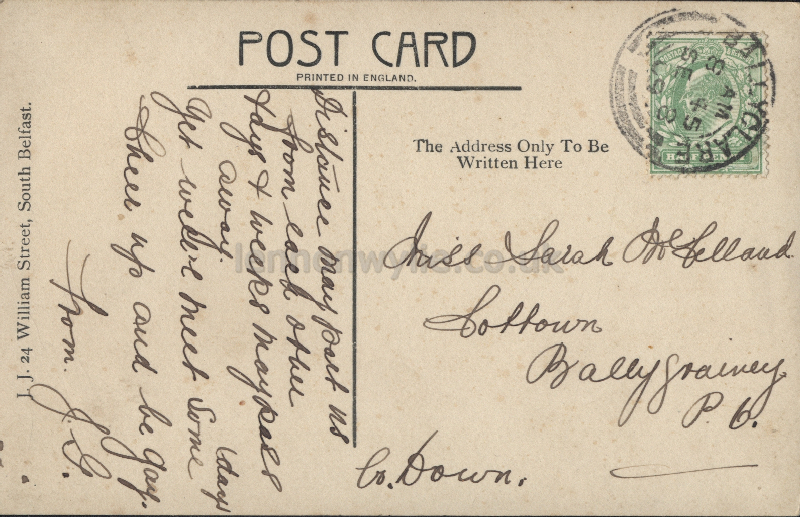 POST CARD
PRINTED IN ENGLAND.
The Address Only To Be
Written Here
BALLYCLARE
8 AM
SE 5
08
HALFPENNY
Distance may part us
from each other
days & weeks may pass
away
yet we've meet some
days
Cheer up and be gay.
from.
J. G.
Miss Sarah McClelland
Cottown
Ballygrainey
P. O.
Co. Down.
J. J. 24 William Street, South Belfast.
lennonwylie.co.uk